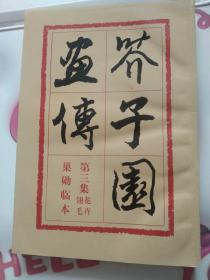 芥子園
畫傳
第三集花卉翎毛
巢勛临本
HELLO